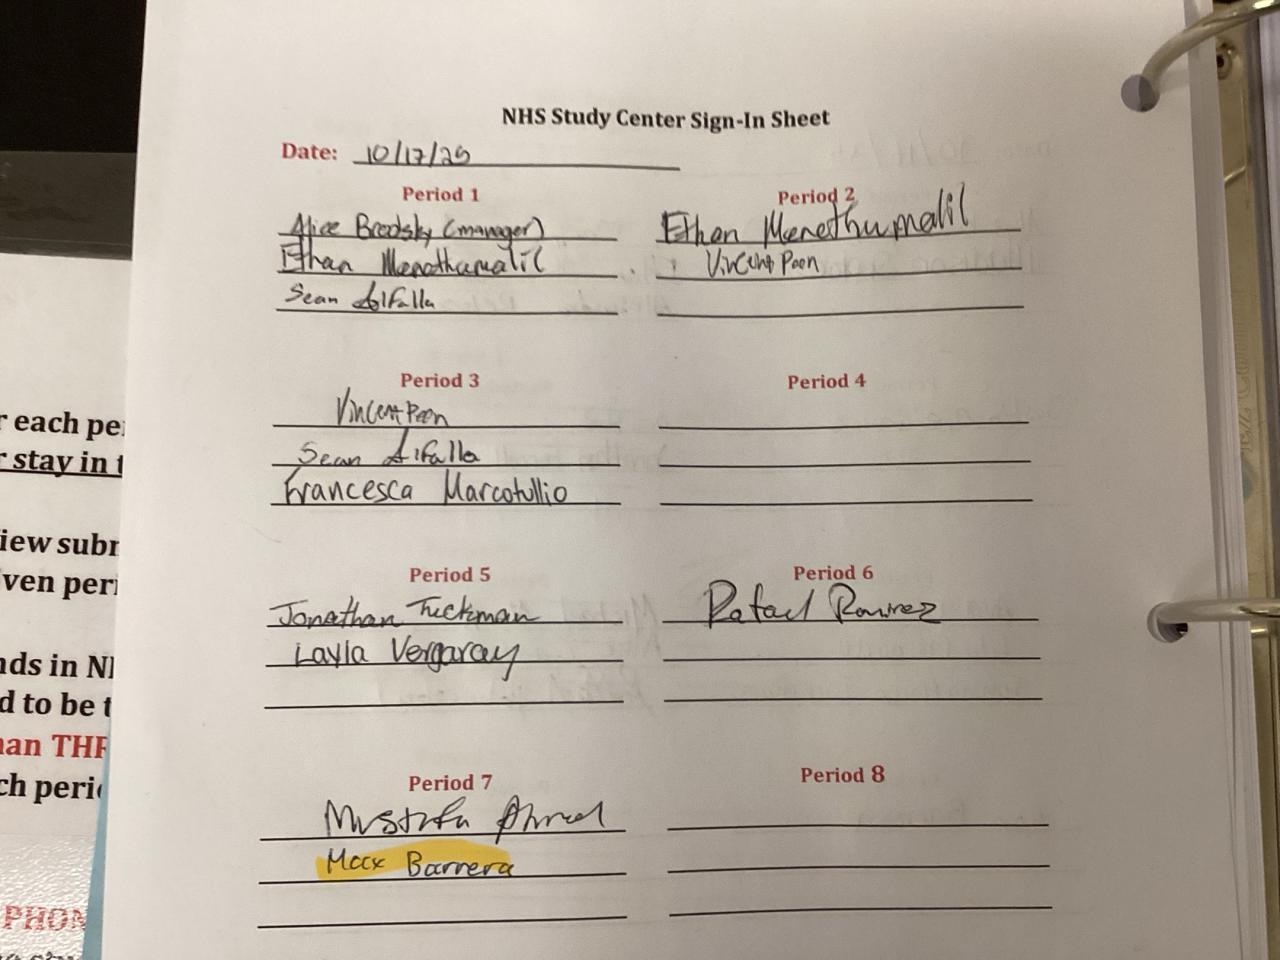 NHS Study Center Sign-In Sheet
Date: 10/17/25
Period 1
Alice Brodsky (manager)
Ethan Manethumalil
Sean Alfalla
Period 2
Ethan Manethumalil
Vincent Poon
Period 3
Vincent Poon
Sean Alfalla
Francesca Marcotullio
Period 4
Period 5
Jonathan Tuckman
Layla Vergaray
Period 6
Rafael Ramirez
Period 7
Mustafa Ahmed
Max Barrera
Period 8
r each pe
r stay in t
iew subr
ven peri
nds in NH
d to be t
han THR
ch perio
PHON